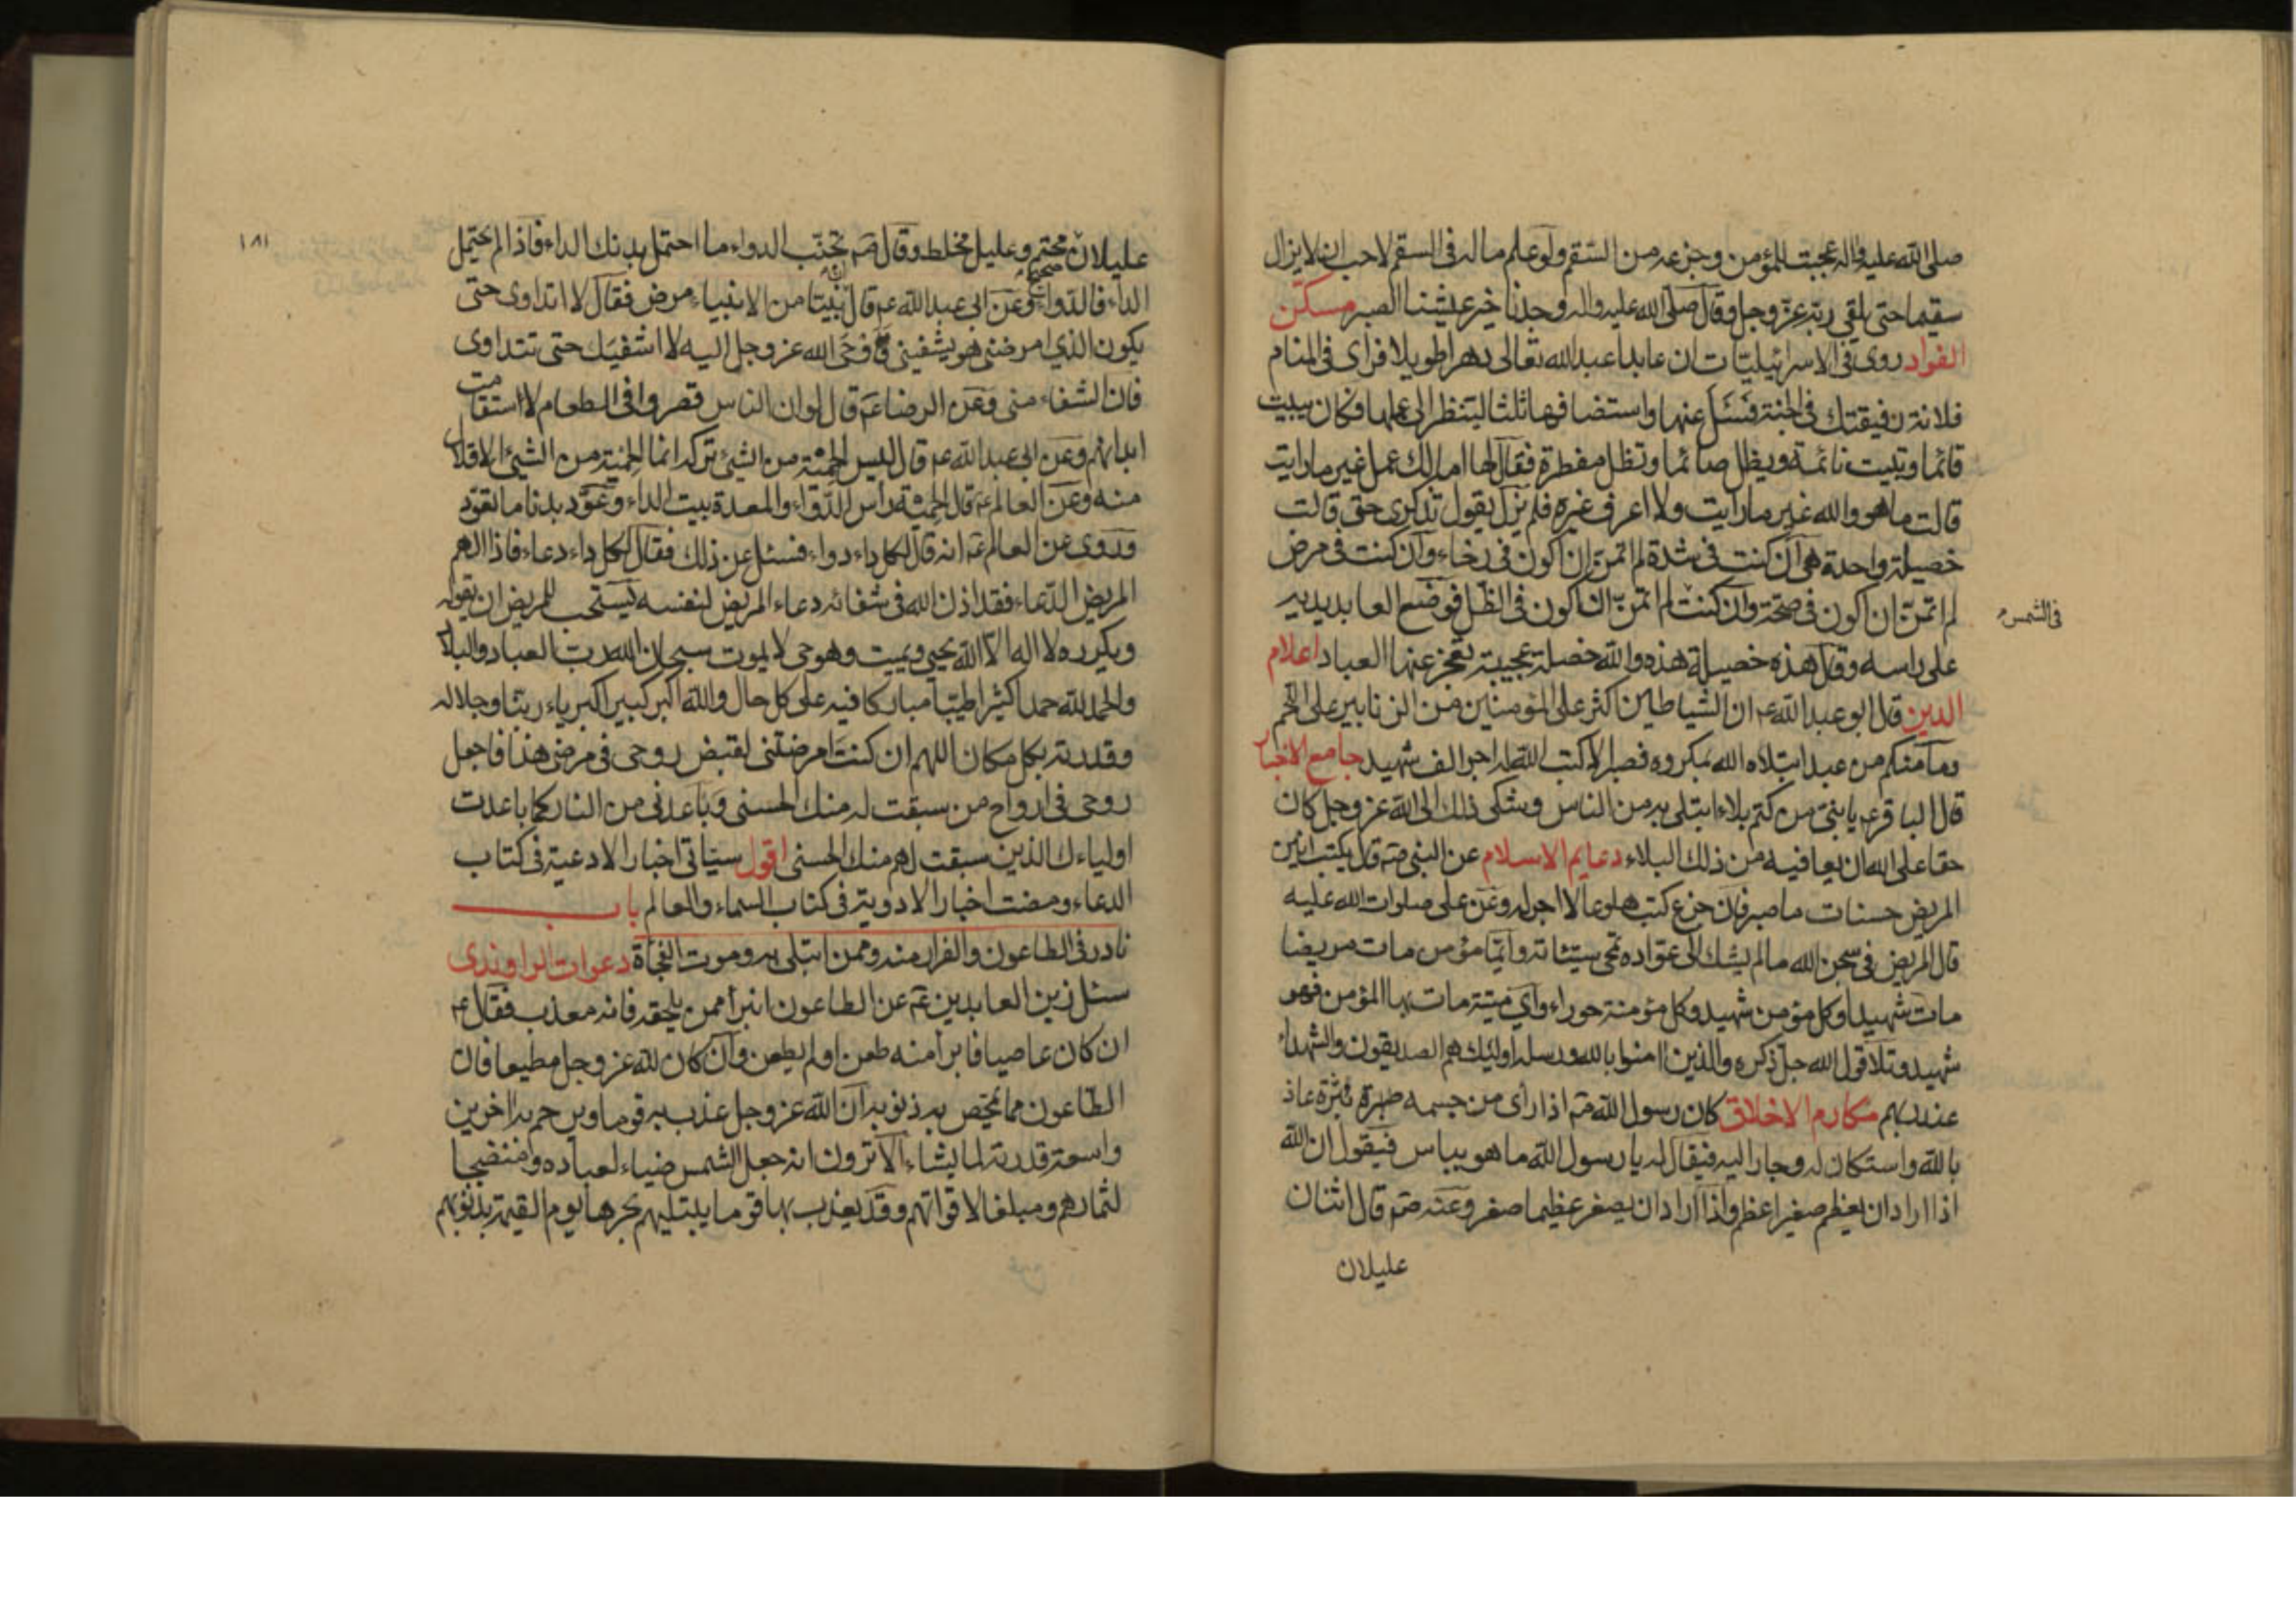 صلى الله عليه واله عجبت للمؤمن وجزعه من السقم ولو علم ماله فى السقم لاحب ان لا يزال
سقيما حتى يلقى ربه عز وجل وقال صلى الله عليه واله وجدنا خير عيشنا الصبر مسكن
الفواد روى فى الاسرائيليات ان عابدا عبد الله تعالى دهرا طويلا فراى فى المنام
فلانة رفيقتك فى الجنة فسئل عنها واستضافها ثلثا لينظر الى عملها فكان يبيت
قائما وتبيت نائمة ويظل صائما وتظل مفطرة فقال لها اما لك عمل غير ما رايت
قالت ما هو والله غير ما رايت ولا اعرف غيره فلم يزل يقول تذكرى حتى قالت
خصيلة واحدة هى ان كنت فى شدة لم اتمن ان اكون فى رخاء وان كنت فى مرض
لم اتمن ان اكون فى صحة وان كنت لم اتمن ان اكون فى الظل فوضع العابد يديه
فى الشمس
على راسه وقال هذه خصيلة هذه والله خصلة عجيبة تعجز عنها العباد اعلام
الدين قال ابو عبد الله ع ان الشياطين اكثر على المؤمنين من الزنابير على اللحم
وما منكم من عبد ابتلاه الله بمكروه فصبر الا كتب الله له اجر الف شهيد جامع الاخبار
قال الباقر ع يا بنى من كتم بلاء ابتلى به من الناس وشكى ذلك الى الله عز وجل كان
حقا على الله ان يعافيه من ذلك البلاء دعايم الاسلام عن النبى صم قال يكتب انين
المريض حسنات ما صبر فان جزع كتب هلوعا لا اجر له وعن على صلوات الله عليه
قال المريض فى سجن الله ما لم يشك الى عواده تمحى سيئاته واى مؤمن مات مريضا
مات شهيدا وكل مؤمن شهيد وكل مؤمنة حوراء واى ميتة مات بها المؤمن فهو
شهيد وتلا قول الله جل ذكره والذين امنوا بالله ورسله اوليك هم الصديقون والشهداء
عند ربهم مكارم الاخلاق كان رسول الله صم اذا راى من جسمه بثرة عاذ
بالله واستكان له وجار اليه فيقال له يا رسول الله ما هو بباس فيقول ان الله
اذا اراد ان يعظم صغيرا عظم واذا اراد ان يصغر عظيما صغر وعنه صم قال اثنان
عليلان
١٨١
عليلان صحيح محتم وعليل مخلط وقال صم تجنب الدواء ما احتمل بدنك الداء فاذا لم يحتمل
الداء فالدواء وعن ابى عبد الله ع قال ان نبيا من الانبياء مرض فقال لا اتداوى حتى
يكون الذى امرضنى هو يشفينى فاوحى الله عز وجل اليه لا اشفيك حتى تتداوى
فان الشفاء منى وعن الرضا ع قال لو ان الناس قصروا فى الطعام لاستقامت
ابدانهم وعن ابى عبد الله ع قال ليس الحمية من الشئ تركه انما الحمية من الشئ الاقلال
منه وعن العالم ع قال الحمية راس الدواء والمعدة بيت الداء وعود بدنا ما تعود
وروى عن العالم ع انه قال لكل داء دواء فسئل عن ذلك فقال لكل داء دعاء فاذا الهم
المريض الدعاء فقد اذن الله فى شفائه دعاء المريض لنفسه يستحب للمريض ان يقوله
ويكرره لا اله الا الله يحيى ويميت وهو حى لا يموت سبحان الله رب العباد والبلاد
والحمد لله حمدا كثيرا طيبا مباركا فيه على كل حال والله اكبر كبيرا كبرياء ربنا وجلاله
وقدرته بكل مكان اللهم ان كنت امرضتنى لقبض روحى فى مرضى هذا فاجعل
روحى فى ارواح من سبقت له منك الحسنى وباعدنى من النار كما باعدت
اولياءك الذين سبقت لهم منك الحسنى اقول سياتى اخبار الادعية فى كتاب
الدعاء ومضت اخبار الادوية فى كتاب السماء والعالم باب
نادر فى الطاعون والفرار منه وممن ابتلى به وموت الفجأة دعوات الراوندى
سئل زين العابدين ع عن الطاعون انبرأ ممن يلحقه فانه معذب فقال ع
ان كان عاصيا فابرأ منه طعن او لم يطعن وان كان لله عز وجل مطيعا فان
الطاعون مما تمحص به ذنوبه ان الله عز وجل عذب به قوما ويرحم به اخرين
واسعة قدرته لما يشاء الا ترون انه جعل الشمس ضياء لعباده ومنضجا
لثمارهم ومبلغا لاقواتهم وقد يعذب بها قوما يبتليهم بحرها يوم القيمة بذنوبهم